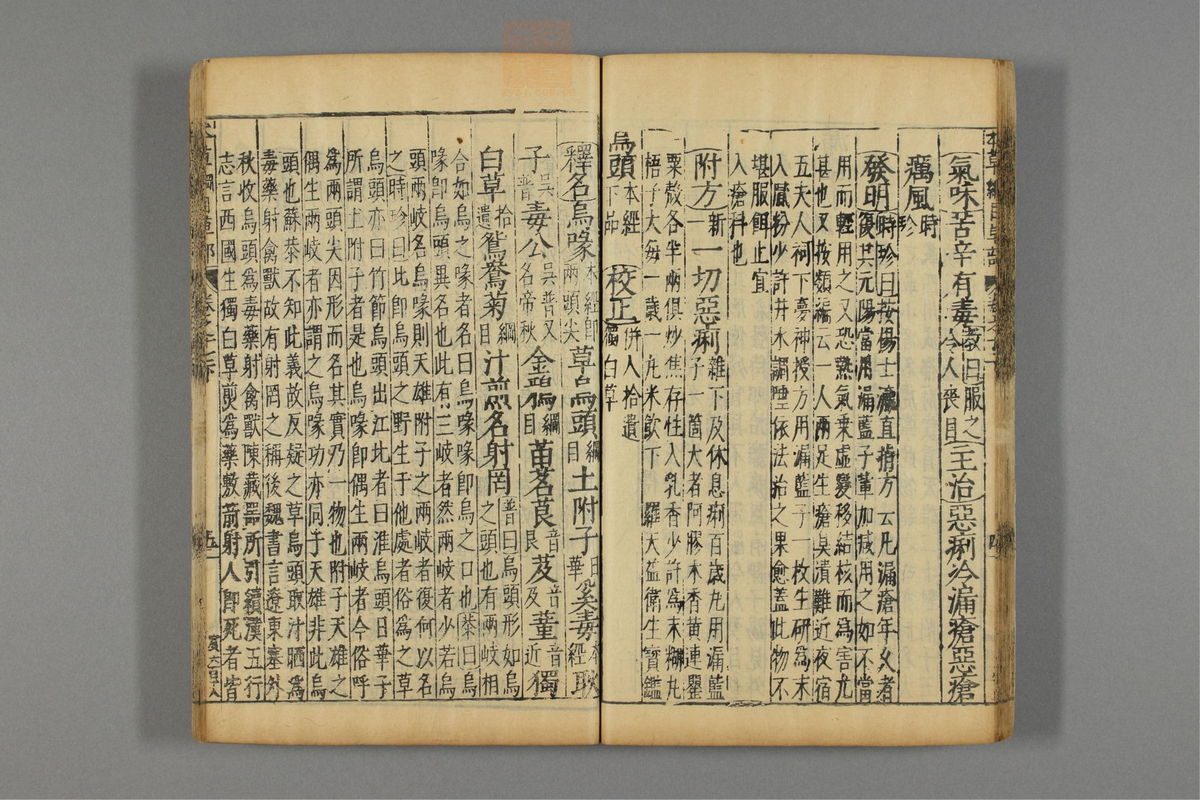 本草綱目草部
氣味苦辛有毒 㪅曰服之令人喪目 主治惡痢冷漏瘡惡瘡
癘風 時珍
發明 時珍曰按楊士瀛直指方云凡漏瘡年久者
復其元陽當用漏藍子輩加減用之如不當
用而輕用之又恐熱氣乘虛變移結核而為害尤
甚也又按類編云一人兩足生瘡臭潰難近夜宿
五夫人祠下夢神授方用漏藍子一枚生研為末
入膩粉少許井水調塗依法治之果愈蓋此物不
堪服餌止宜
入瘡科也
附方 新一 一切惡痢 雜下及休息痢百歲丸用漏藍
子一箇大者阿膠木香黃連罌
粟殻各半兩俱炒焦存性入乳香少許為末糊丸
梧子大每一歲一丸米飲下 羅天益衛生寶鑑
烏頭 本經下品 校正 併入拾遺獨白草
釋名烏喙 本經即兩頭尖 草烏頭 綱目 土附子 日華 奚毒 本經 耿
子 吳普 毒公 吳普又名帝秋 金鴉 綱目 苗名茛 音艮 芨 音及 菫 音近 獨
白草 拾遺 鴛鴦菊 綱目 汁煎名射罔 普曰烏頭形如烏
之頭也有兩岐相
合如烏之喙者名曰烏喙喙即烏之口也恭曰烏
喙即烏頭異名也此有三岐者然兩岐者少若烏
頭兩岐名烏喙則天雄附子之兩岐者復何以名
之時珍曰此即烏頭之野生于他處者俗為之草
烏頭亦曰竹節烏頭出江北者曰淮烏頭日華子
所謂土附子者是也烏喙即偶生兩岐者今俗呼
為兩頭尖因形而名其實乃一物也附子天雄之
偶生兩岐者亦謂之烏喙功亦同于天雄非此烏
頭也蘇恭不知此義故反疑之草烏頭取汁晒為
毒藥射禽獸故有射罔之稱後魏書言遼東塞外
秋收烏頭為毒藥射禽獸陳藏噐所引續漢五行
志言西國生獨白草煎為藥敷箭射人即死者皆